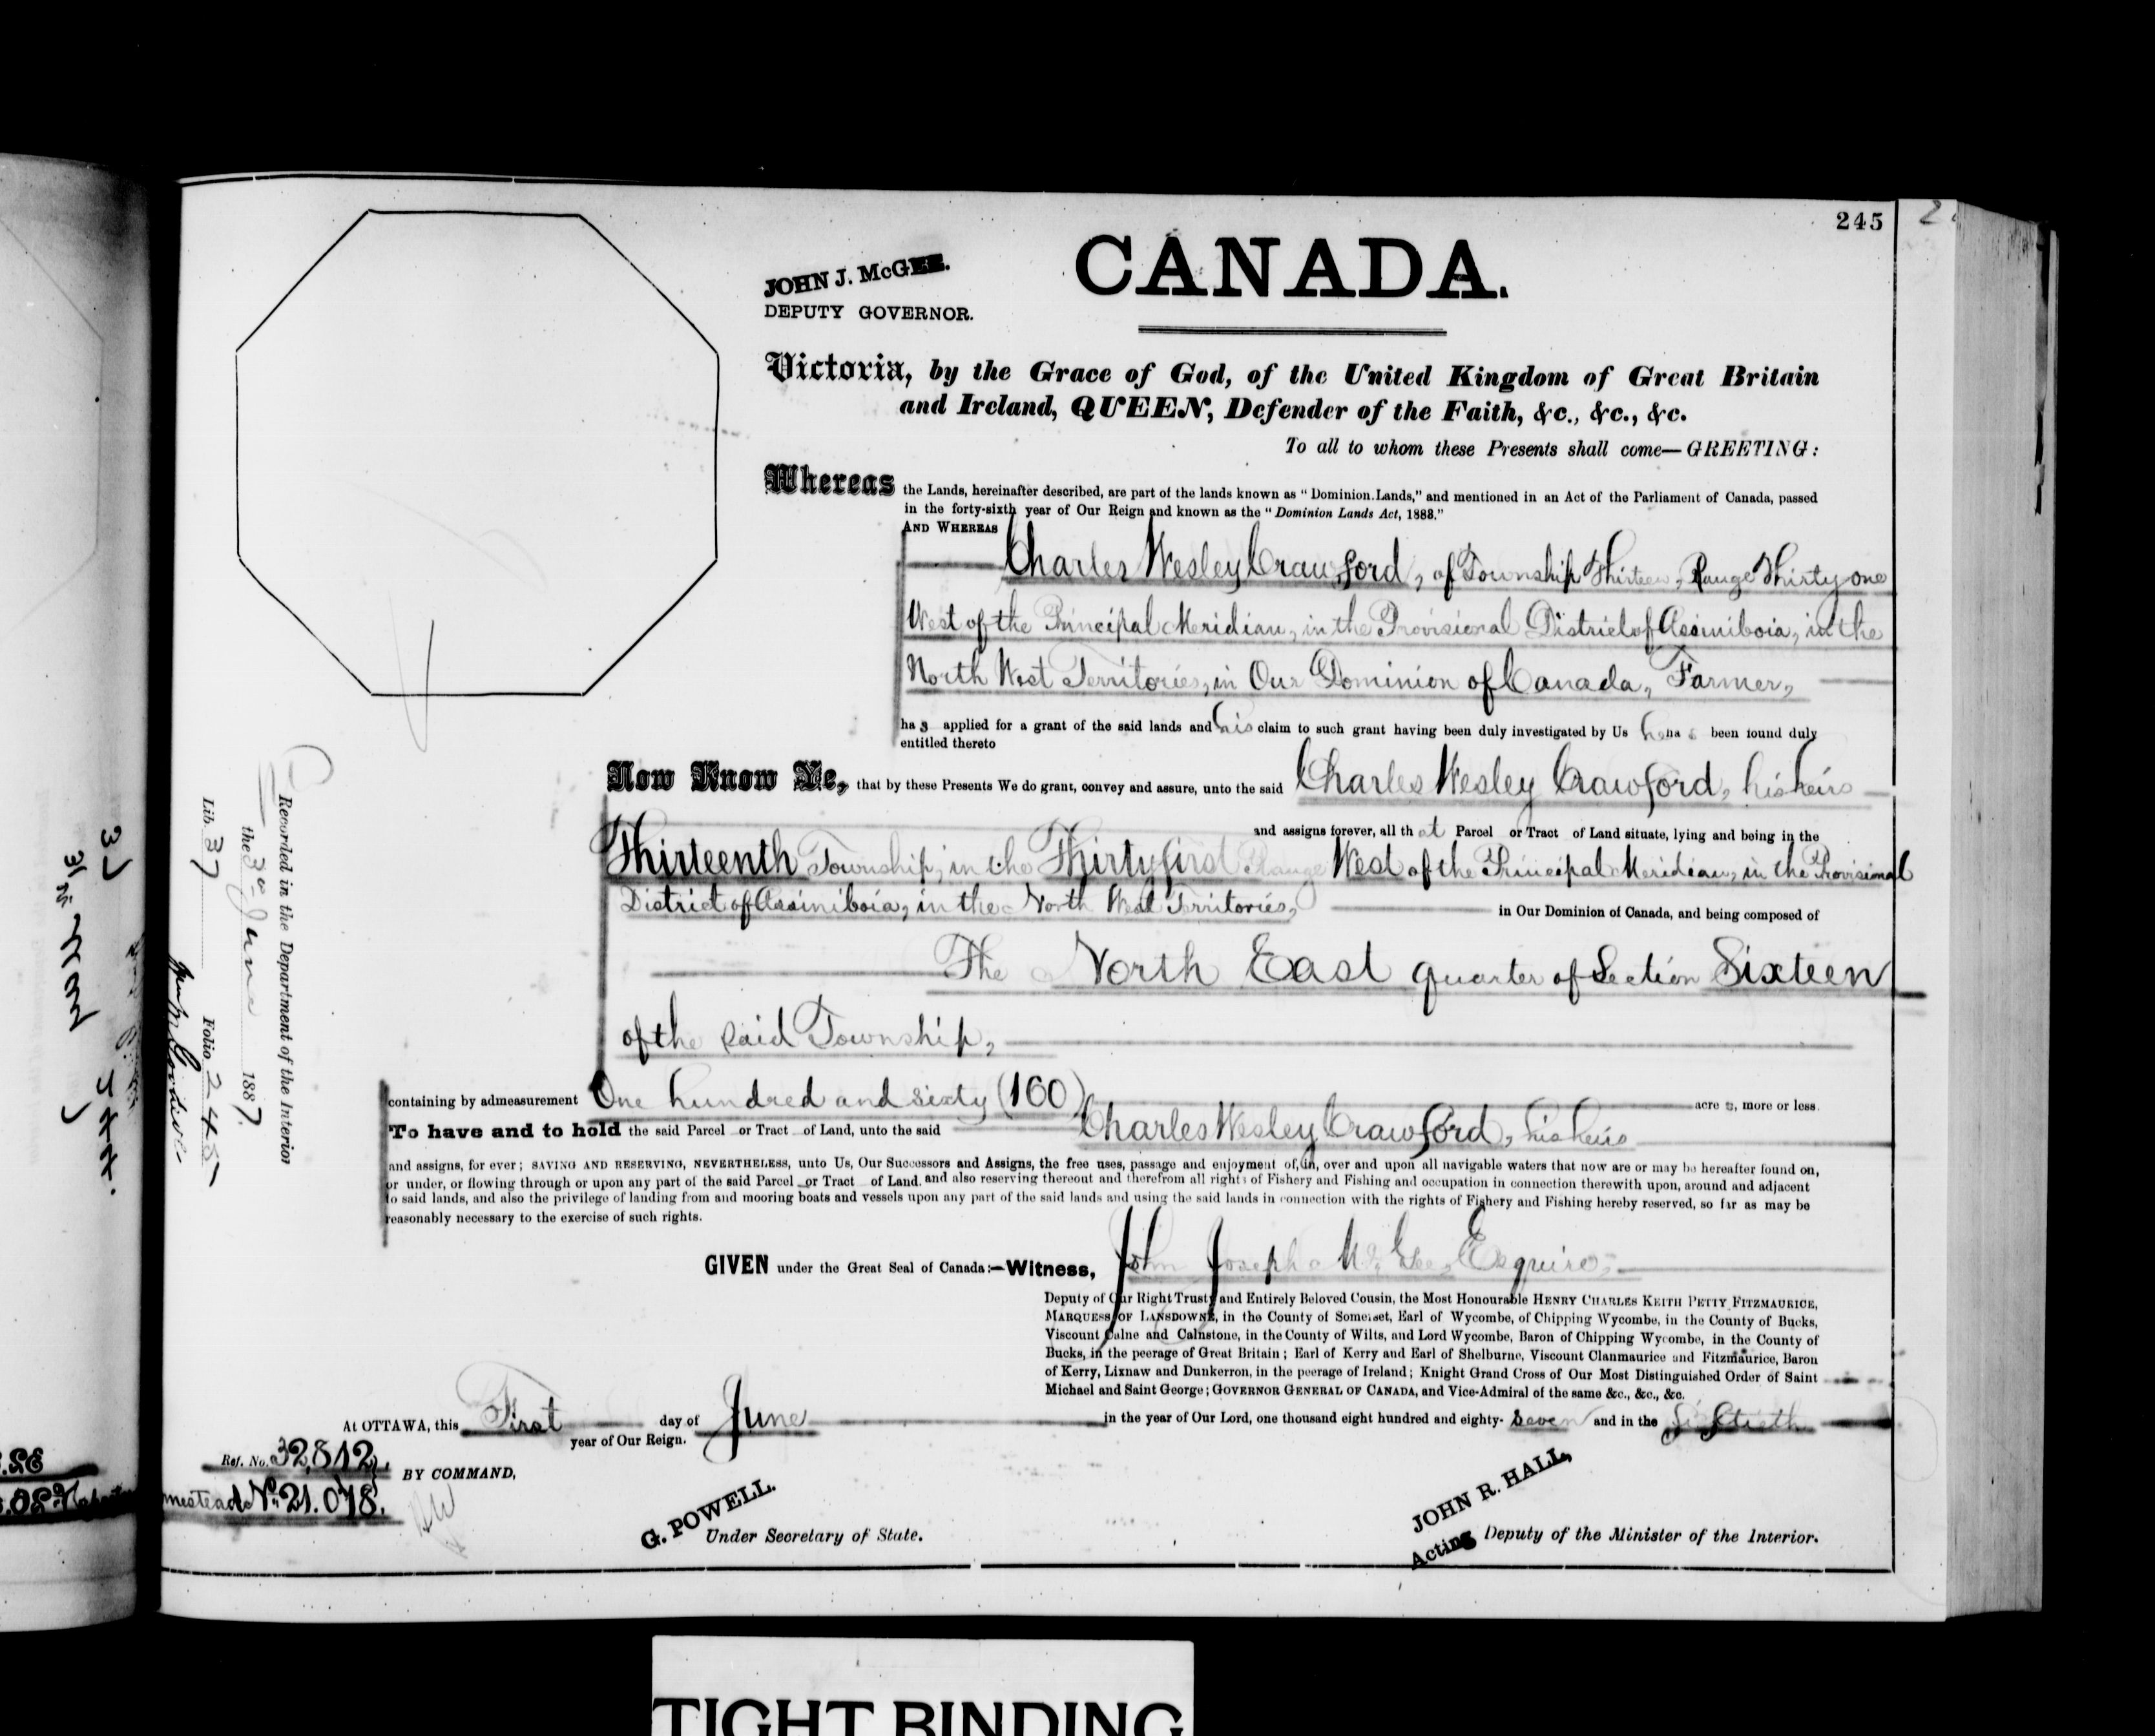 245
JOHN J. McGEE.
DEPUTY GOVERNOR.
CANADA.
Victoria, by the Grace of God, of the United Kingdom of Great Britain
and Ireland, QUEEN, Defender of the Faith, &c., &c., &c.
To all to whom these Presents shall come—GREETING:
Whereas the Lands, hereinafter described, are part of the lands known as "Dominion Lands," and mentioned in an Act of the Parliament of Canada, passed
in the forty-sixth year of Our Reign and known as the "Dominion Lands Act, 1883."
AND WHEREAS
Charles Wesley Crawford, of Township Thirteen, Range Thirty one
West of the Principal Meridian, in the Provisional District of Assiniboia, in the
North West Territories, in Our Dominion of Canada, Farmer,
has applied for a grant of the said lands and his claim to such grant having been duly investigated by Us he has been found duly
entitled thereto
Now Know Ye, that by these Presents We do grant, convey and assure, unto the said Charles Wesley Crawford, his heirs
and assigns forever, all that Parcel or Tract of Land situate, lying and being in the
Thirteenth Township, in the Thirty first Range West of the Principal Meridian, in the Provisional
District of Assiniboia, in the North West Territories, in Our Dominion of Canada, and being composed of
The North East quarter of Section Sixteen
of the said Township,
containing by admeasurement One hundred and sixty (160) acres, more or less.
To have and to hold the said Parcel or Tract of Land, unto the said Charles Wesley Crawford, his heirs
and assigns, for ever; SAVING AND RESERVING, NEVERTHELESS, unto Us, Our Successors and Assigns, the free uses, passage and enjoyment of, in, over and upon all navigable waters that now are or may be hereafter found on,
or under, or flowing through or upon any part of the said Parcel or Tract of Land, and also reserving thereout and therefrom all rights of Fishery and Fishing and occupation in connection therewith upon, around and adjacent
to said lands, and also the privilege of landing from and mooring boats and vessels upon any part of the said lands and using the said lands in connection with the rights of Fishery and Fishing hereby reserved, so far as may be
reasonably necessary to the exercise of such rights.
GIVEN under the Great Seal of Canada:—Witness, John Joseph McGee, Esquire,
Deputy of Our Right Trusty and Entirely Beloved Cousin, the Most Honourable HENRY CHARLES KEITH PETTY FITZMAURICE,
MARQUESS OF LANSDOWNE, in the County of Somerset, Earl of Wycombe, of Chipping Wycombe, in the County of Bucks,
Viscount Calne and Calnstone, in the County of Wilts, and Lord Wycombe, Baron of Chipping Wycombe, in the County of
Bucks, in the peerage of Great Britain; Earl of Kerry and Earl of Shelburne, Viscount Clanmaurice and Fitzmaurice, Baron
of Kerry, Lixnaw and Dunkerron, in the peerage of Ireland; Knight Grand Cross of Our Most Distinguished Order of Saint
Michael and Saint George; GOVERNOR GENERAL OF CANADA, and Vice-Admiral of the same &c., &c., &c.
At OTTAWA, this First day of June in the year of Our Lord, one thousand eight hundred and eighty-seven and in the Fiftieth
year of Our Reign.
Ref. No. 32,812.
BY COMMAND,
mestead No 21.078.
G. POWELL.
Under Secretary of State.
JOHN R. HALL,
Acting Deputy of the Minister of the Interior.
Recorded in the Department of the Interior
the 3rd June 1887.
Lib. 37 Folio 245
TIGHT BINDING